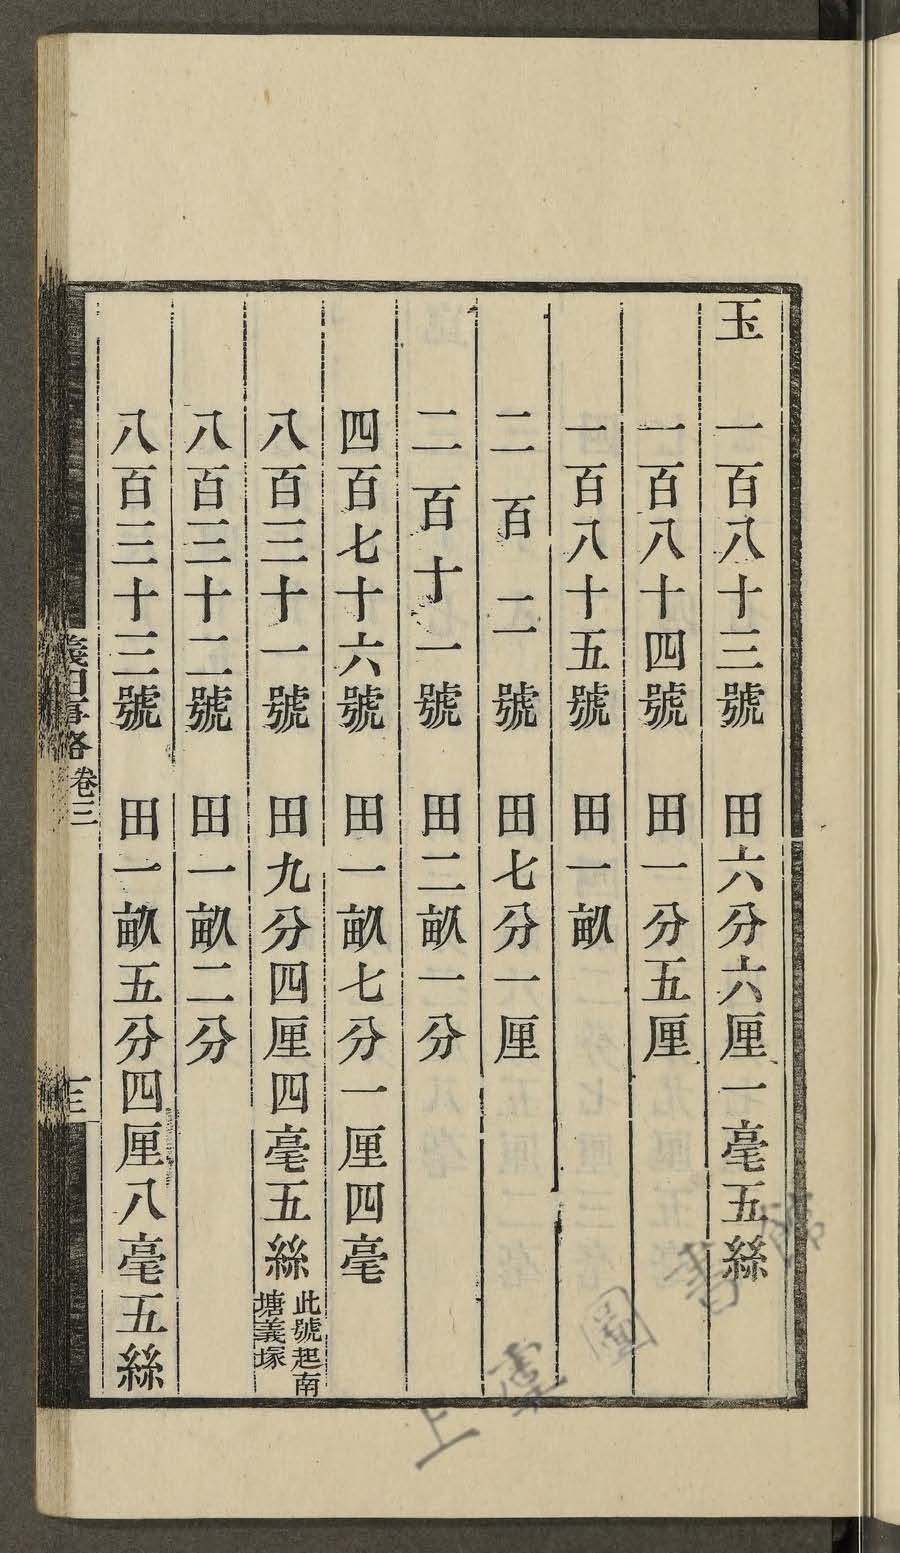 玉 一百八十三號 田六分六厘一毫五絲
一百八十四號 田一分五厘
一百八十五號 田一畝
二百二號 田七分一厘
二百十一號 田二畝一分
四百七十六號 田一畝七分一厘四毫
八百三十一號 田九分四厘四毫五絲 此號起南塘義塚
八百三十二號 田一畝二分
八百三十三號 田一畝五分四厘八毫五絲
義田事略 卷三
三
上虞圖書館